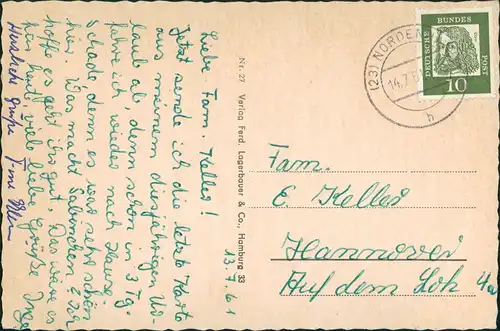 13.7.61
Liebe Fam. Keller!
Jetzt sende ich die letzte Karte
aus meinem diesjährigen Ur-
laub ab, denn schon in 3 Tg.
fahre ich wieder nach Hause.
Schade, denn es war sehr schön
hier. Was macht Sabinchen? Ich
hoffe es geht ihr gut. Das wäre es
für heut viele liebe Grüße Inge
Herzliche Grüße
Nr. 27 Verlag Ferd. Lagerbauer & Co., Hamburg 33
(23) NORDEN
14.7.61
h
DEUTSCHE
BUNDES
POST
10
Fam.
E. Keller
Hannover
Auf dem Loh 4a